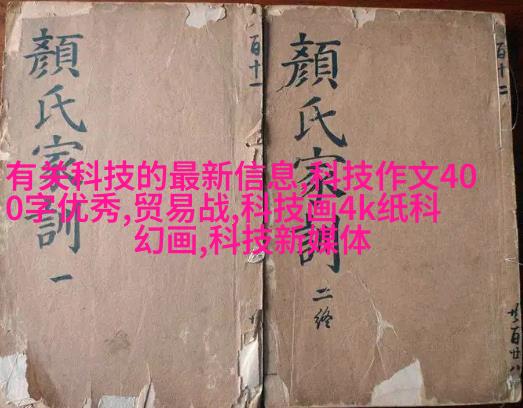 顔氏家訓 一
百十一
顔氏家訓 二終
百十二
廿百廿八
有关科技的最新信息,科技作文40
0字优秀,贸易战,科技画4k纸科
幻画,科技新媒体